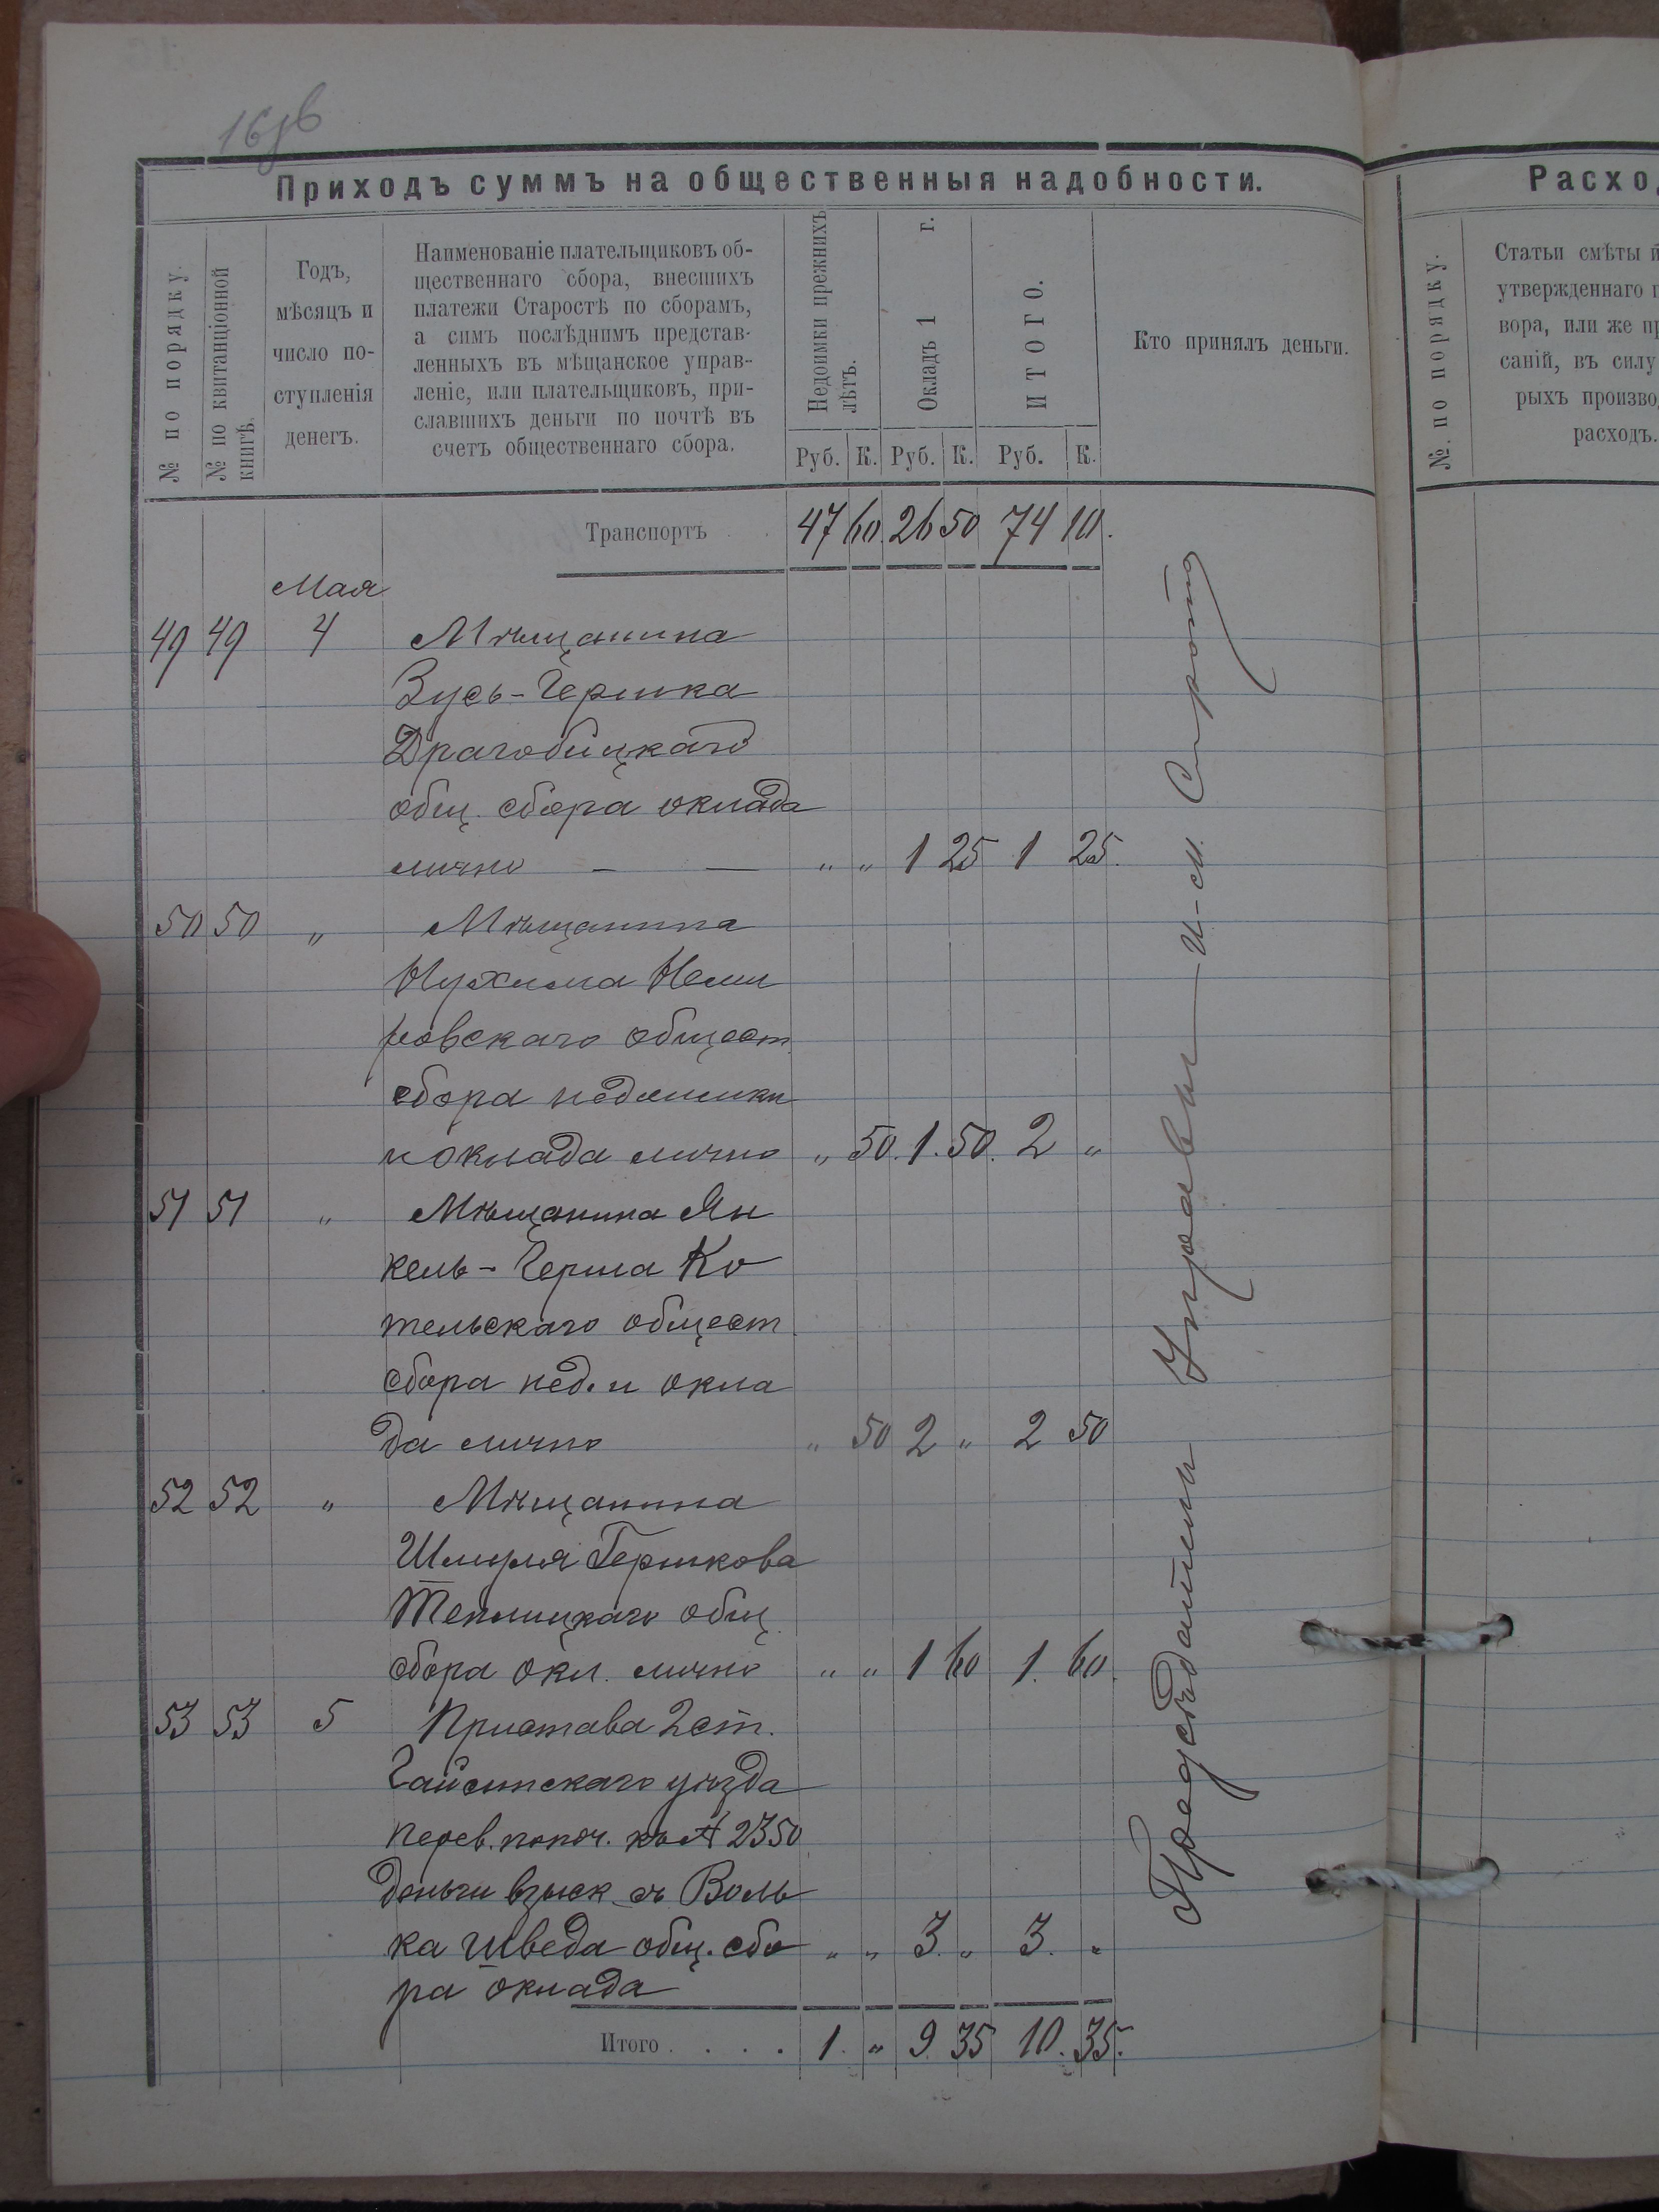 16 об
Приходъ суммъ на общественныя надобности.
№ по порядку.
№ по квитанціонной
книгѣ.
Годъ,
мѣсяцъ и
число по-
ступленія
денегъ.
Наименованіе плательщиковъ об-
щественнаго сбора, внесшихъ
платежи Старостѣ по сборамъ,
а симъ послѣднимъ представ-
ленныхъ въ мѣщанское управ-
леніе, или плательщиковъ, при-
славшихъ деньги по почтѣ въ
счетъ общественнаго сбора.
Недоимки прежнихъ
лѣтъ.
Окладъ 1 г.
ИТОГО.
Руб. К. Руб. К. Руб. К.
Кто принялъ деньги.
Транспортъ 47 60 26 50 74 10.
Мая
49 49 4 Мѣщанина
Зусь-Гершка
Драгобицкаго
общ. сбора оклада
лично — — " " 1 25 1 25.
50 50 " Мѣщанина
Нухима Неми
ровскаго общест.
сбора недоимки
и оклада лично " 50. 1. 50. 2 "
51 51 " Мѣщанина Ян
кель-Герша Ко
тельскаго общест.
сбора нед. и окла
да лично " 50 2 " 2 50
52 52 " Мѣщанина
Шмуля Гершкова
Теплицкаго общ.
сбора окл. лично " " 1 60 1. 60.
53 53 5 Пристава 2 ст.
Гайсинскаго уѣзда
перев. по поч. къ № 2350
деньги взыск. съ Воль
ка Шведа общ. сбо " " 3. " 3. "
ра оклада
Итого . . . . 1. " 9. 35 10. 35.
Предсѣдатель Управы И-М. Сирота
Расхо
№. по порядку.
Статьи смѣты и
утвержденнаго п
вора, или же пр
саній, въ силу
рыхъ произво
расходъ.